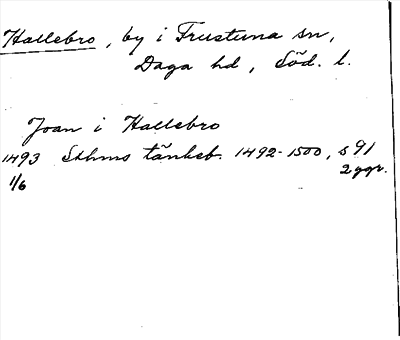 Hallebro, by i Frustuna sn,
Daga hd, Söd. l.
Joan i Hallebro
1493 Sthms tänkeb. 1492-1500, s 91
1/6 2 ggr.